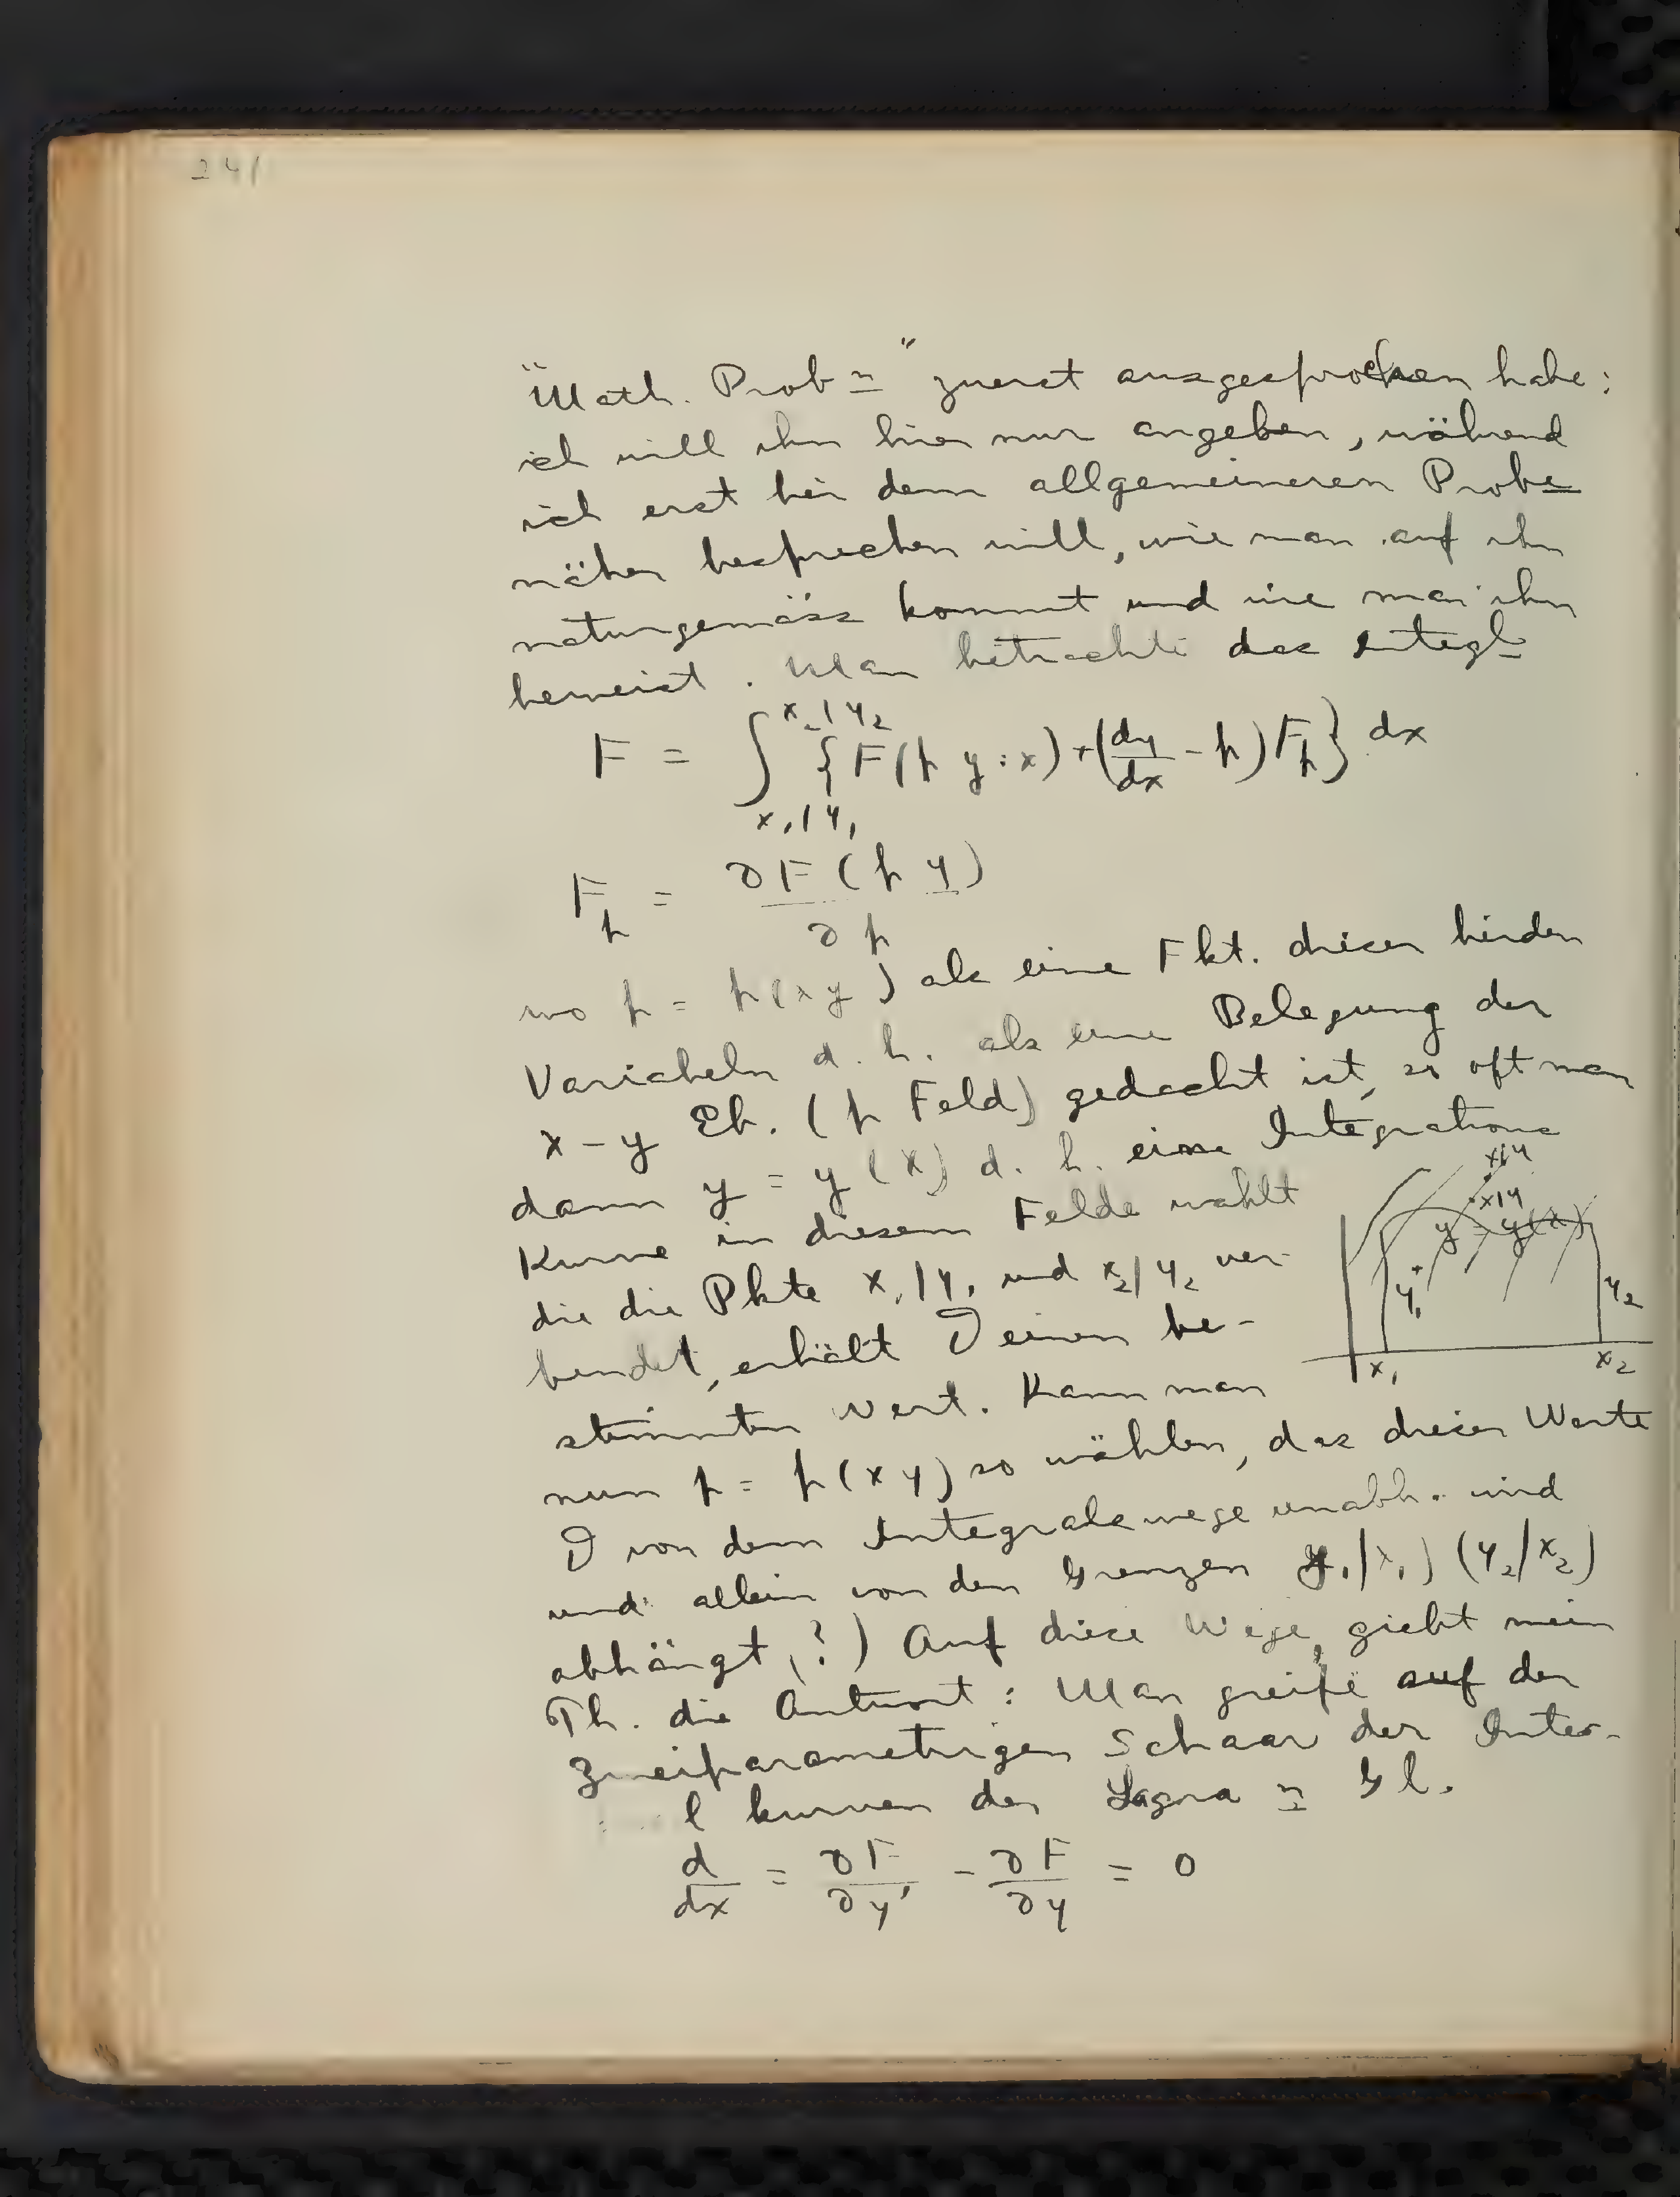 241
"Math. Prob<u>n</u>" zuerst ausgesprochen habe:
ich will ihn hier nur angeben, während
ich erst bei dem allgemeineren Probe
näher besprechen will, wie man auf ihn
naturgemäss kommt und wie man ihn
beweist. Man betrachte das Integl
F = ∫_{x₁|y₁}^{x₂|y₂} {F(p y; x) + (dy/dx - p) F_p} dx
F_p = ∂F(p y)/∂p
wo p = p(xy) als eine Fkt. dieser beiden
Variabeln d. h. als eine Belegung der
x-y Eb. (p Feld) gedacht ist, so oft man
dann y = y(x) d. h. eine Integrations
Kurve in diesem Felde wählt
die die Pkte x₁|y₁ und x₂|y₂ ver-
bindet, erhält J einen be-
stimmten Wert. Kann man
x|y
x|y
y = y(x)
y₁
y₂
x₁
x₂
nun p = p(xy) so wählen, das dieser Werte
J von dem Integralswege unabh. wird
und allein von den Grenzen y₁|x₁) (y₂/x₂)
abhängt, ?) Auf diese Wege, giebt mein
Th. die Antwort: Man greife auf der
Zweiparametrigen Schaar der Inter-
l kurven der Lagra<u>n</u> Gl.
d/dx = ∂F/∂y' - ∂F/∂y = 0